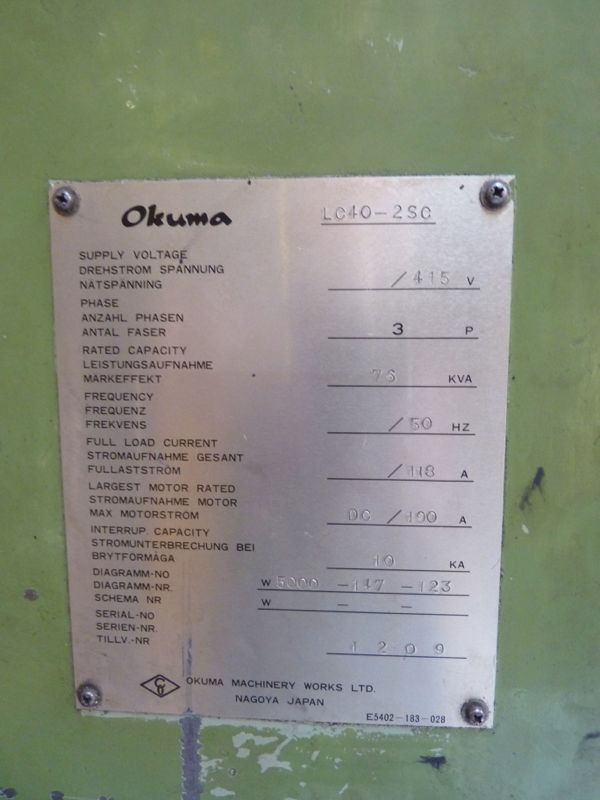 Okuma LC40-2SC
SUPPLY VOLTAGE
DREHSTROM SPANNUNG
NÄTSPÄNNING /415 V
PHASE
ANZAHL PHASEN
ANTAL FASER 3 P
RATED CAPACITY
LEISTUNGSAUFNAHME
MÄRKEFFEKT 76 KVA
FREQUENCY
FREQUENZ
FREKVENS /50 HZ
FULL LOAD CURRENT
STROMAUFNAHME GESAMT
FULLASTSTRÖM /118 A
LARGEST MOTOR RATED
STROMAUFNAHME MOTOR
MAX MOTORSTRÖM DC /190 A
INTERRUP. CAPACITY
STROMUNTERBRECHUNG BEI
BRYTFÖRMÅGA 10 KA
DIAGRAMM-NO
DIAGRAMM-NR. W 5000 -147 -123
SCHEMA NR W - -
SERIAL-NO
SERIEN-NR.
TILLV.-NR 1209
OKUMA MACHINERY WORKS LTD.
NAGOYA JAPAN
E5402-183-028